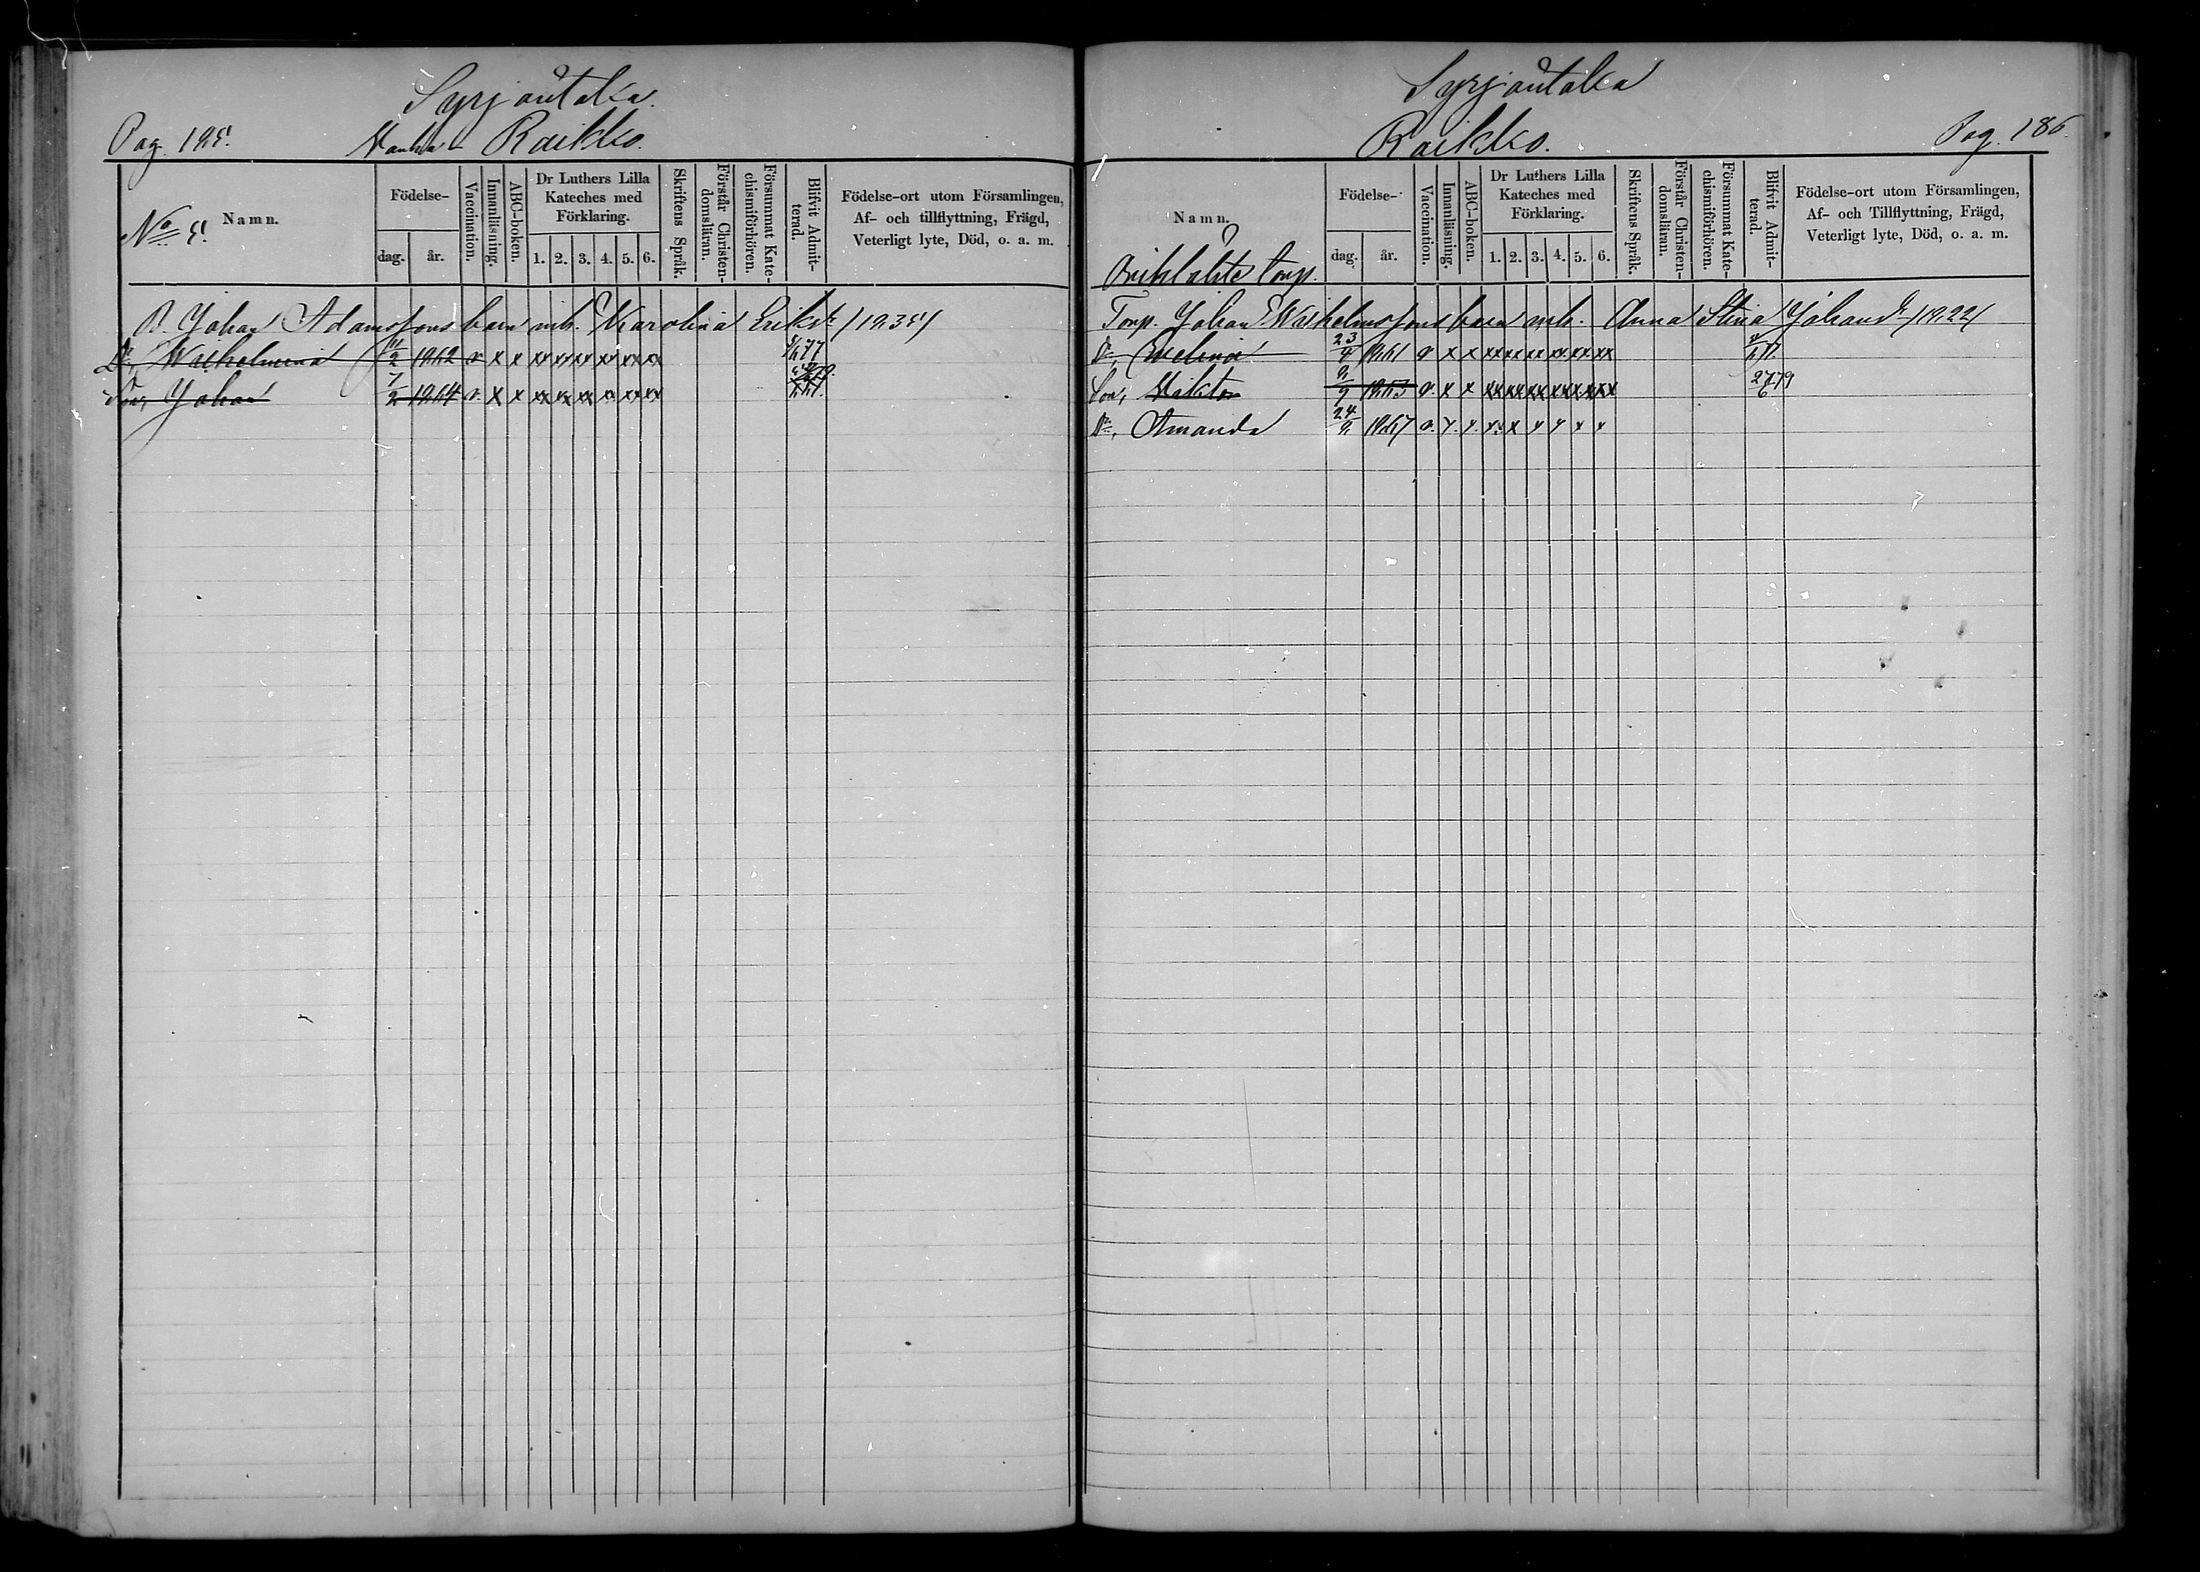 Syrjäntaka.
Pag. 185. Vanha- Raikko.
No 5. Namn.
Födelse-
dag. år.
Vaccination.
Innanläsning.
ABC-boken.
Dr Luthers Lilla
Kateches med
Förklaring.
1. 2. 3. 4. 5. 6.
Skriftens Språk.
Förstår Christen-
domsläran.
Försummat Kate-
chismiförhören.
Blifvit Admit-
terad.
Födelse-ort utom Församlingen,
Af- och tillflyttning, Frägd,
Veterligt lyte, Död, o. a. m.
B. Johan Adamssons barn mh. Karolina Eriksdr /1835/
Dr, Wilhelmina 11/2 1862 v x x xx xx xx xx xx xx 77
Son, Johan 7/2 1864 v. x x xx xx xx xx xx xx
Syrjäntaka
Raikko. Pag. 186.
Namn.
torp.
Födelse-
dag. år.
Vaccination.
Innanläsning.
ABC-boken.
Dr Luthers Lilla
Kateches med
Förklaring.
1. 2. 3. 4. 5. 6.
Skriftens Språk.
Förstår Christen-
domsläran.
Försummat Kate-
chismiförhören.
Blifvit Admit-
terad.
Födelse-ort utom Församlingen,
Af- och Tillflyttning, Frägd,
Veterligt lyte, Död, o. a. m.
Torp. Johan Wilhelmssons barn mh. Anna Stina Johansdr /1822/
Dr, Evelina 23/4 1861 v x x xx xx xx xx xx xx
Son, Viktor 1863 v. x x xx xx xx xx xx xx 27/6 79
Dr, Amanda 24/8 1867 v. x. x. x x x x x x